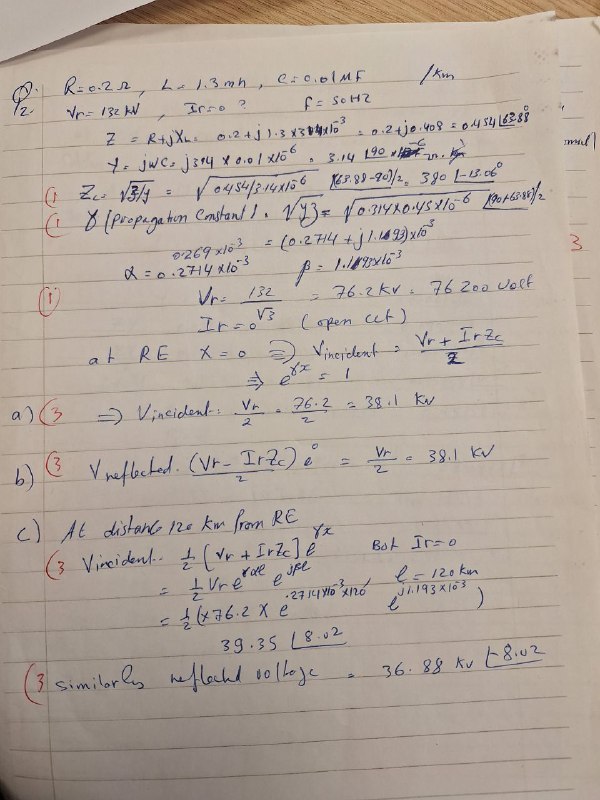 Q2. R=0.2Ω, L=1.3mh, C=0.01MF /km
Vr=132 kV, Ir=0 ? f=50HZ
Z = R+jXL = 0.2+j1.3×314×10⁻³ = 0.2+j0.408 = 0.454∠63.88°
Y = jWC = j314×0.01×10⁻⁶ = 3.14∠90 ×10⁻⁶
(1 Zc = √z/y = √0.454/3.14×10⁻⁶ ∠(63.88-90)/2 = 380∠-13.06°
(1 γ (Propagation Constant) = √yz = √0.314×0.45×10⁻⁶ ∠(90+63.88)/2
0.269×10⁻³ = (0.2714+j1.1693)×10⁻³
α = 0.2714×10⁻³ β = 1.1693×10⁻³
(1) Vr = 132/√3 = 76.2 kV = 76200 volt
Ir = 0 (open cct)
at RE X=0 ⇒ Vincident = Vr + IrZc / 2
⇒ e^γx = 1
a) (3 ⇒ Vincident = Vr/2 = 76.2/2 = 38.1 kV
b) (3 Vreflected = (Vr - IrZc)/2 e° = Vr/2 = 38.1 kV
c) At distance 120 km from RE
(3 Vincident = 1/2 [Vr + IrZc] e^γx But Ir=0
= 1/2 Vr e^αl e^jβl l = 120km
= 1/2 (×76.2 × e^.2714×10⁻³×120 e^j1.193×10⁻³ )
39.35∠8.02
(3 similarly reflected voltage = 36.88 kV∠-8.02
3